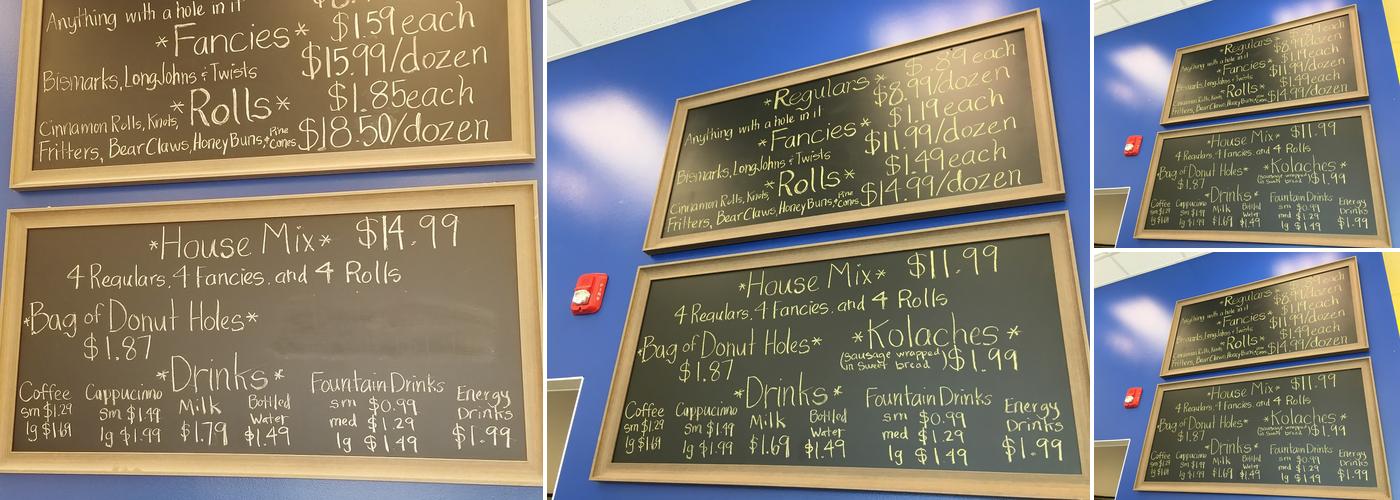 Anything with a hole in it
$1.59 each
*Fancies*
$15.99/dozen
Bismarks, Long Johns & Twists
$1.85 each
*Rolls*
Cinnamon Rolls, Knots,
$18.50/dozen
Fritters, Bear Claws, Honey Buns, & Pine Cones
*House Mix* $14.99
4 Regulars, 4 Fancies, and 4 Rolls
*Bag of Donut Holes*
$1.87
*Drinks*
Coffee
sm $1.29
lg $1.69
Cappuccino
sm $1.49
lg $1.99
Milk
$1.79
Bottled
Water
$1.49
Fountain Drinks
sm $0.99
med $1.29
lg $1.49
Energy
Drinks
$1.99
*Regulars*
$.89 each
Anything with a hole in it
$8.99/dozen
*Fancies*
$1.19 each
Bismarks, Long Johns & Twists
$11.99/dozen
*Rolls*
$1.49 each
Cinnamon Rolls, Knots,
Fritters, Bear Claws, Honey Buns, & Pine Cones
$14.99/dozen
*House Mix* $11.99
4 Regulars, 4 Fancies, and 4 Rolls
*Bag of Donut Holes*
$1.87
*Kolaches*
(sausage wrapped in sweet bread) $1.99
*Drinks*
Coffee
sm $1.29
lg $1.69
Cappuccino
sm $1.49
lg $1.99
Milk
$1.69
Bottled
Water
$1.49
Fountain Drinks
sm $0.99
med $1.29
lg $1.49
Energy
Drinks
$1.99
*Regulars*
Anything with a hole in it
$8.99/dozen
*Fancies*
$1.19 each
Bismarks, Long Johns & Twists
$11.99/dozen
*Rolls*
$1.49 each
$14.99/dozen
*House Mix* $11.99
4 Regulars, 4 Fancies, and 4 Rolls
*Bag of Donut Holes*
$1.87
*Kolaches*
(sausage wrapped in sweet bread) $1.99
*Drinks*
Coffee
sm $1.29
lg $1.69
Cappuccino
sm $1.49
lg $1.99
Milk
$1.69
Bottled
Water
$1.49
Fountain Drinks
sm $0.99
med $1.29
lg $1.49
Energy
Drinks
$1.99
*Regulars*
Anything with a hole in it
$8.99/dozen
*Fancies*
$1.19 each
Bismarks, Long Johns & Twists
$11.99/dozen
*Rolls*
$1.49 each
$14.99/dozen
*House Mix* $11.99
4 Regulars, 4 Fancies, and 4 Rolls
*Bag of Donut Holes*
$1.87
*Kolaches*
(sausage wrapped in sweet bread) $1.99
*Drinks*
Coffee
sm $1.29
lg $1.69
Cappuccino
sm $1.49
lg $1.99
Milk
$1.69
Bottled
Water
$1.49
Fountain Drinks
sm $0.99
med $1.29
lg $1.49
Energy
Drinks
$1.99